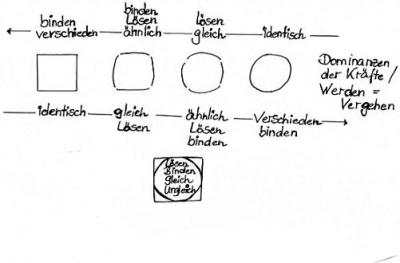 binden verschieden — binden Lösen ähnlich — lösen gleich — identisch
Dominanzen
der Kräfte /
Werden =
Vergehen
identisch — gleich Lösen — ähnlich Lösen binden — Verschieden binden
Lösen
Binden
gleich
Ungleich